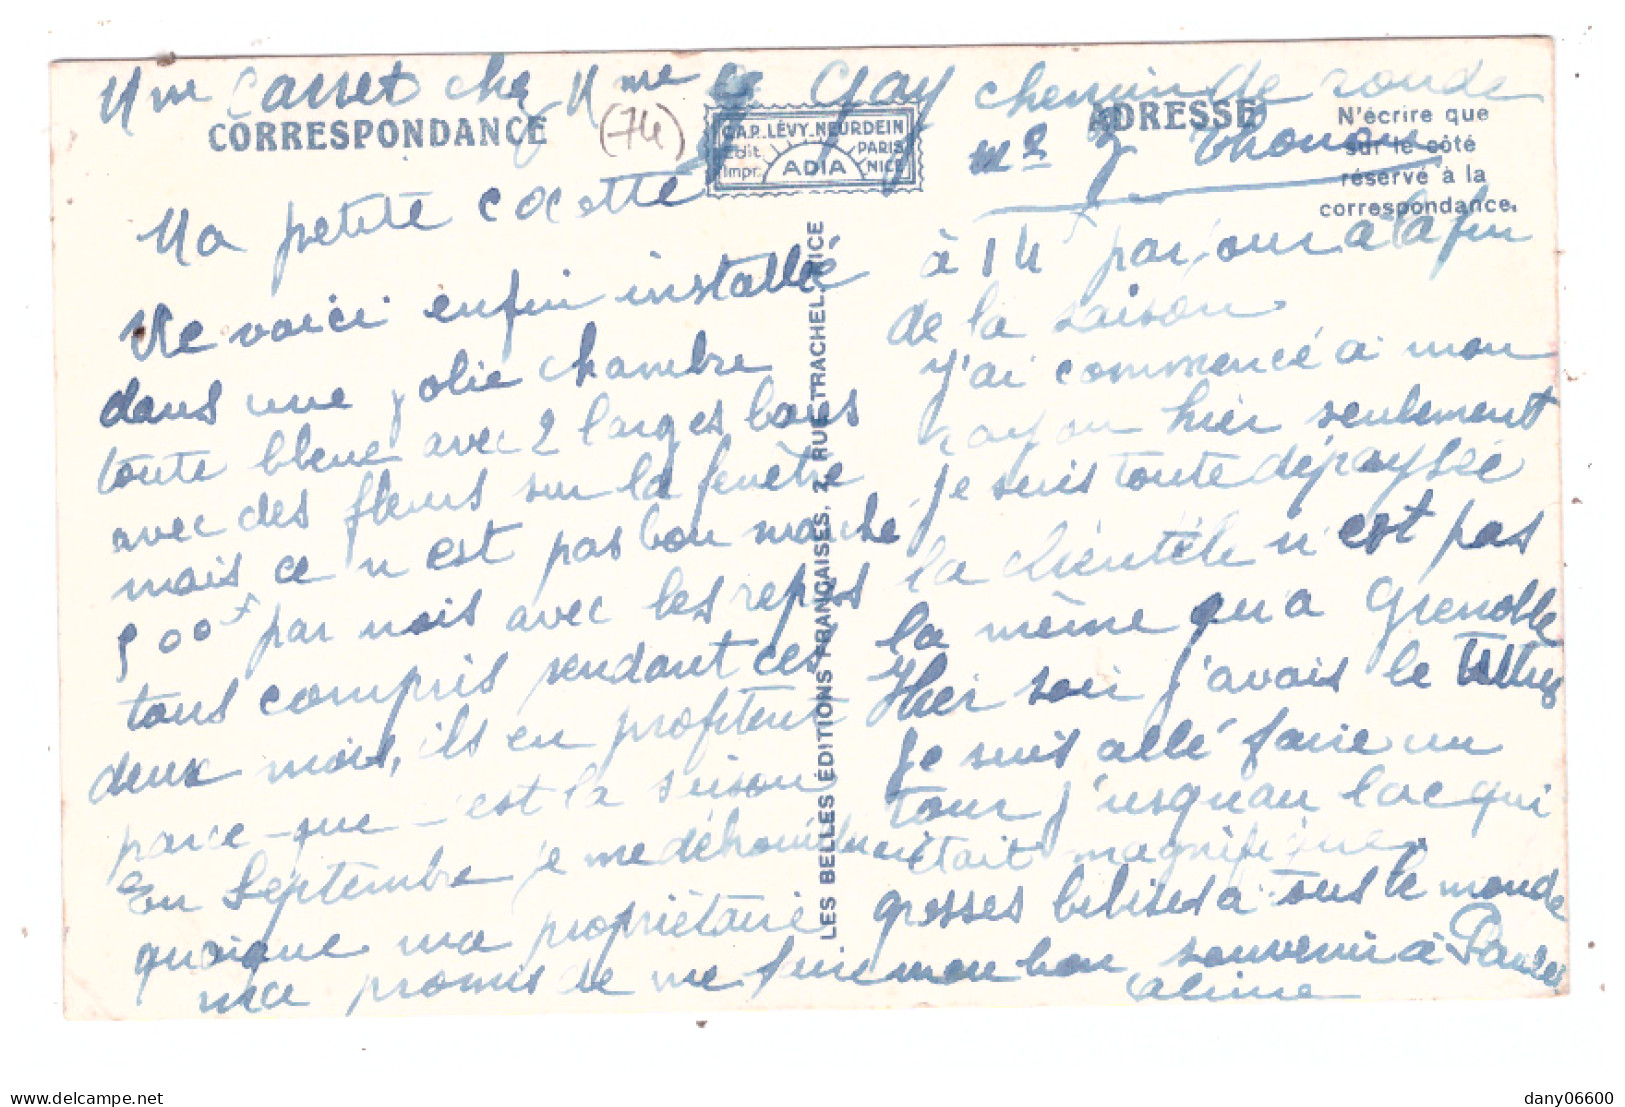 Mme Casset chez Mme Le Gay chemin de ronde
CORRESPONDANCE
(74)
CAP. LÉVY-NEURDEIN
Edit. PARIS
Impr. ADIA NICE
ADRESSE
N'écrire que
sur le côté
réservé à la
correspondance.
nº 7 Thonon
Ma petite cocotte
Me voici enfin installée
dans une jolie chambre
toute bleue avec 2 larges baies
avec des fleurs sur la fenêtre
mais ce n'est pas bon marché
500f par mois avec les repas
tous compris pendant ces
deux mois, ils en profitent
parce-que c'est la saison
En Septembre je me débrouillerai
quoique ma propriétaire
ma promis de me faire
LES BELLES ÉDITIONS FRANÇAISES, 2, RUE TRACHEL. NICE
à 14f par jour a la fin
de la saison
j'ai commencé a mon
rayon hier seulement
je suis toute dépaysée
la clientèle n'est pas
la même qu'a Grenoble
Hier soir j'avais le
Je suis allé faire un
tour j'usqu'au lac qui
était magnifique.
grosses bibises a tous le monde
mon bon souvenir à
Caline
dany06600